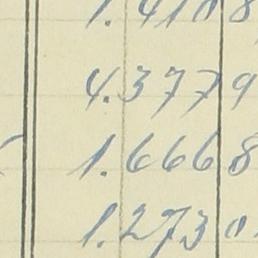 1.410 8
4.377 9
1.666 8
1.273 0